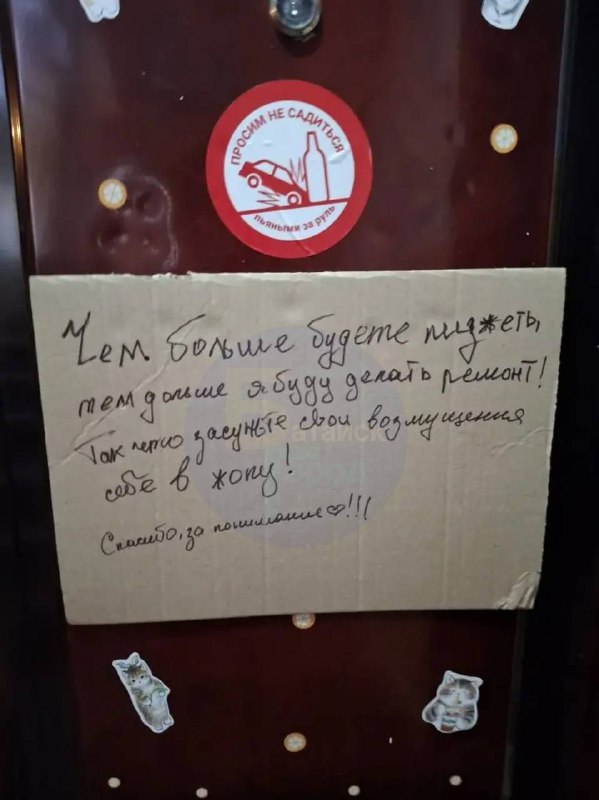 ПРОСИМ НЕ САДИТЬСЯ
ПЬЯНЫМИ ЗА РУЛЬ
Чем больше будете пизд*еть,
тем дольше я буду делать ремонт!
Так что засуньте свои возмущения
себе в жопу!
Спасибо, за понимание♡!!!